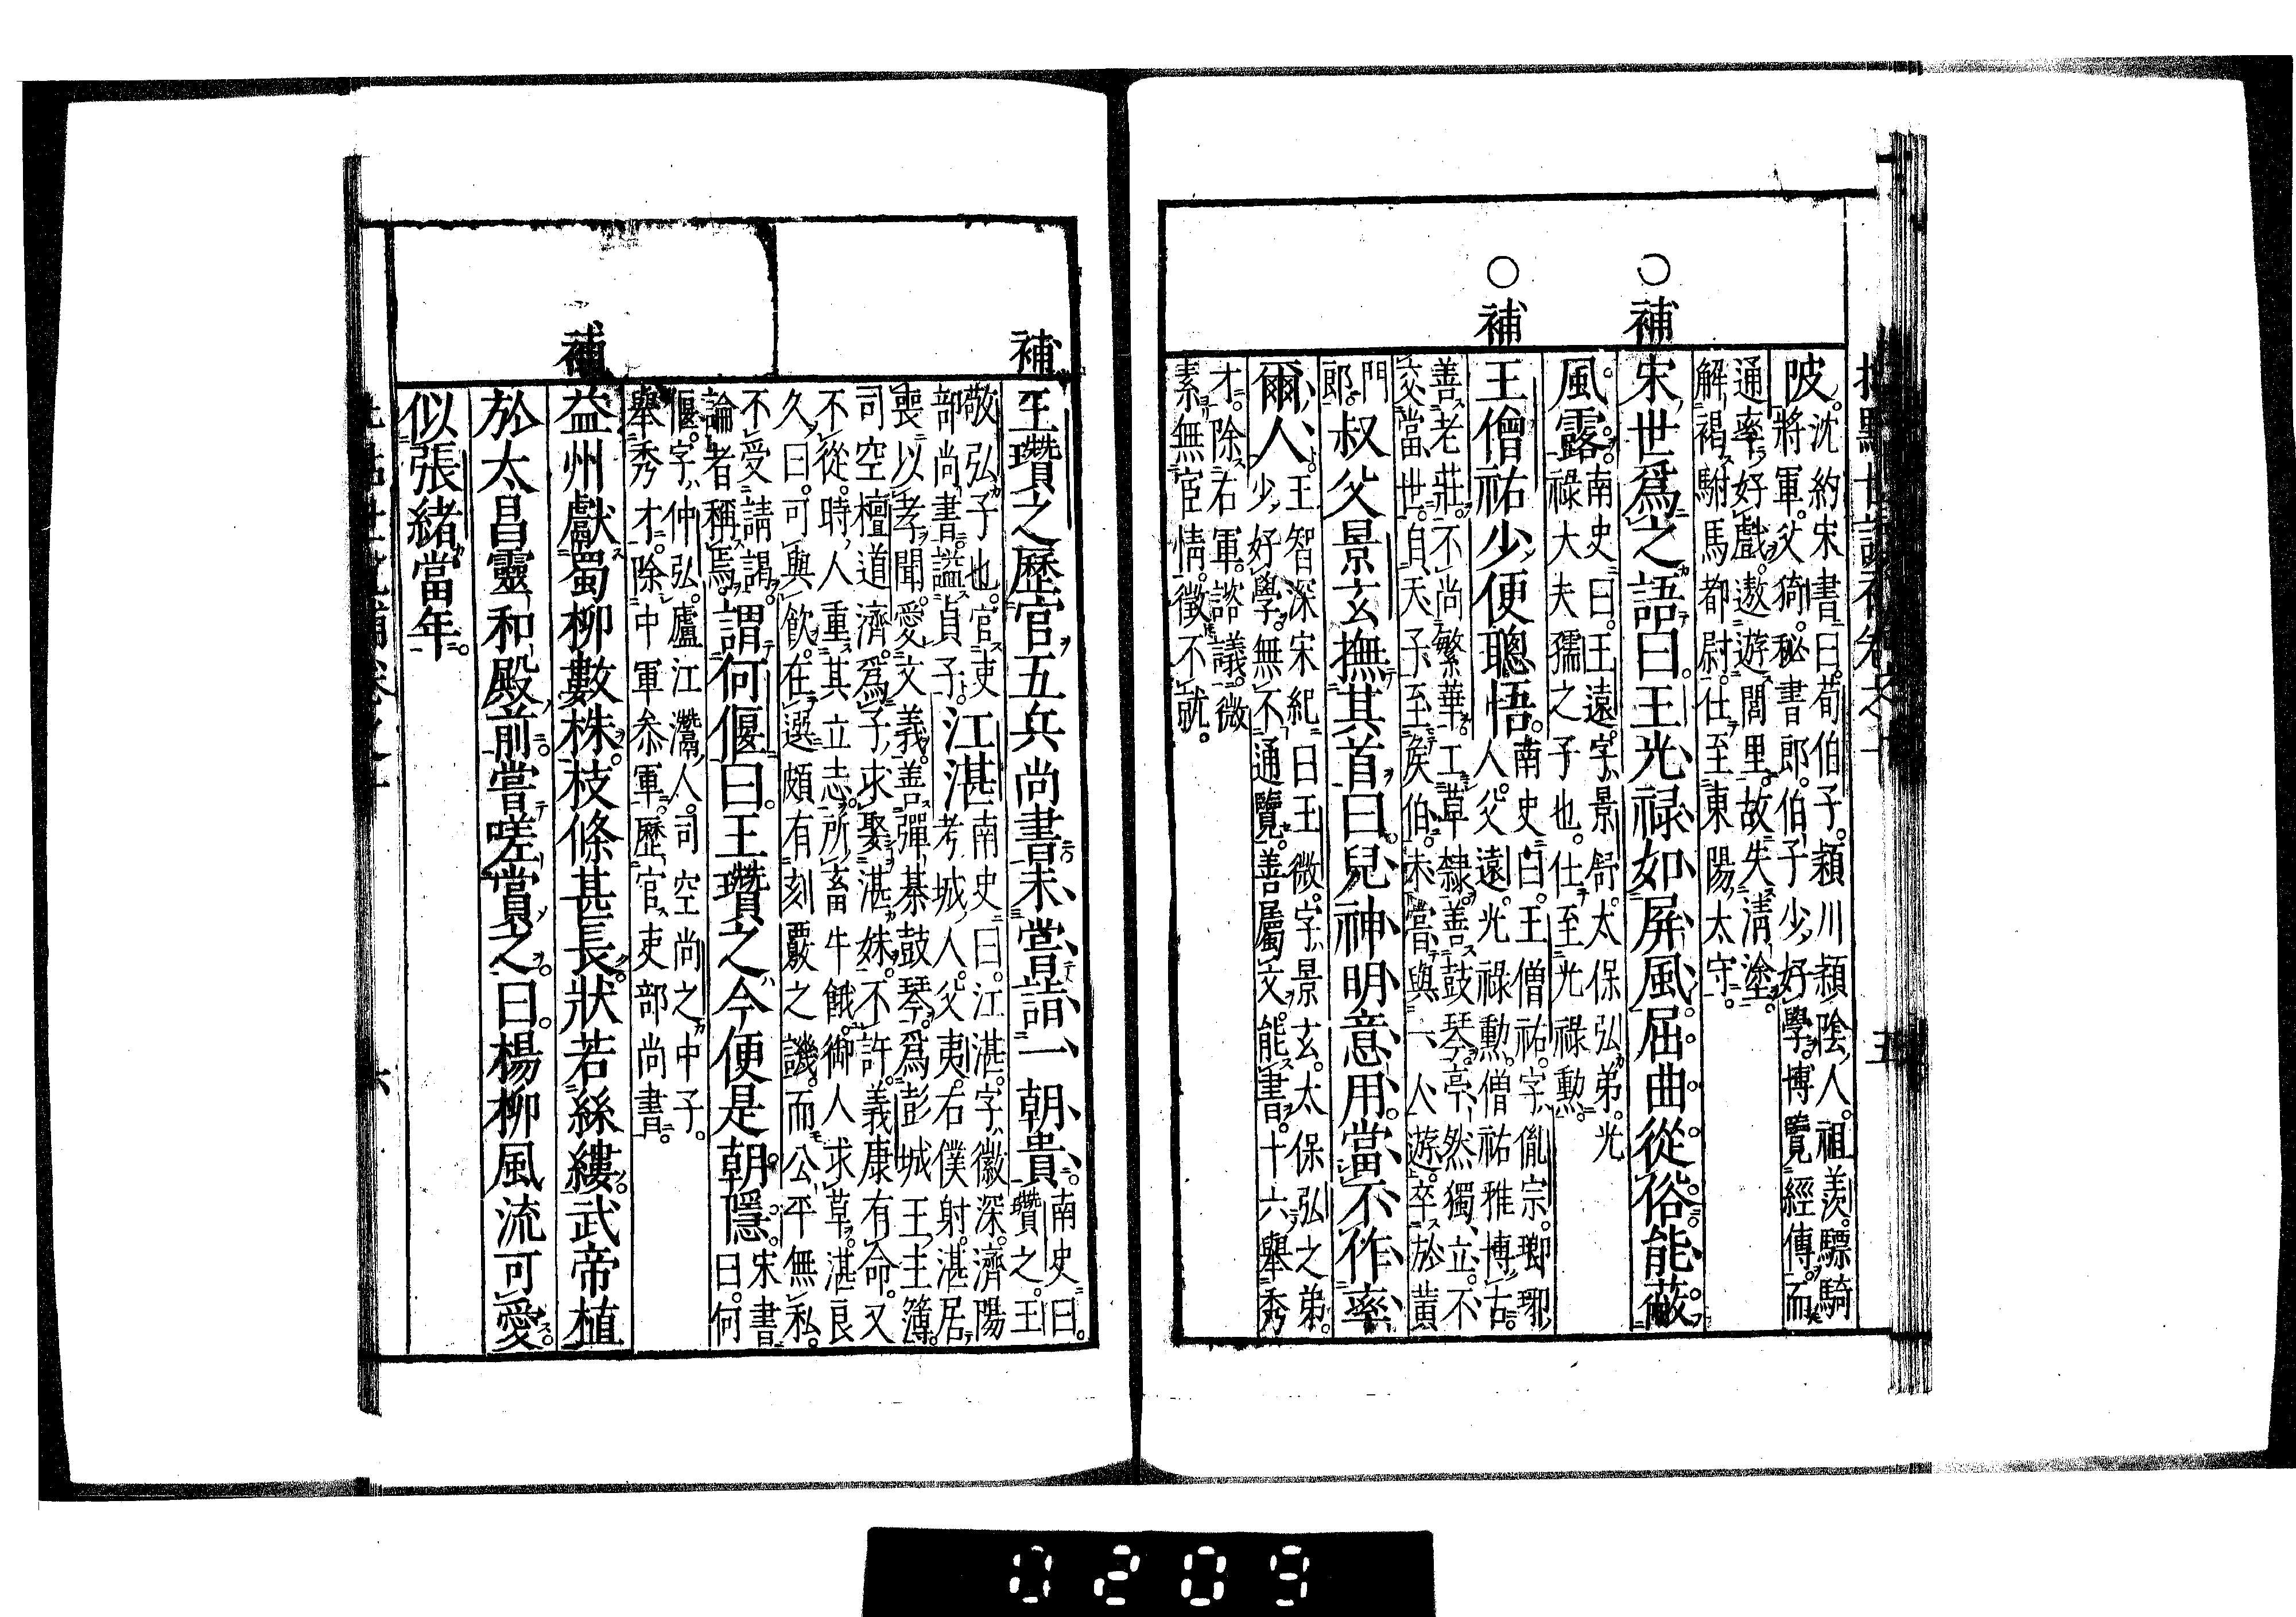 陂。沈約宋書曰。荀伯子。潁川潁陰人。祖羨。驃騎
將軍。父猗。秘書郎。伯子少好學。博覽經傳。而
通率好戲。遨遊閭里。故失淸塗。
解褐駙馬都尉。仕至東陽太守。
○補
宋世爲之語曰。王光祿如屏風。屈曲從俗。能蔽
風露。南史曰。王遠。字景舒。太保弘弟。光
祿大夫孺之子也。仕至光祿勳。
○補
王僧祐少便聰悟。南史曰。王僧祐。字胤宗。瑯琊
人。父遠。光祿勳。僧祐雅博古。
善老莊。不尚繁華。工草隸。善鼓琴。亭然獨立。不
交當世。自天子至矦伯。未嘗與一人遊。卒於黃
門
郎。叔父景玄撫其首曰。兒神明意用。當不作率
爾人。王智深宋紀曰。王微。字景玄。太保弘之弟。
少好學。無不通覽。善屬文。能書。十六舉秀
才。除右軍。諮議。微
素無宦情。徵不就。
五
補
王瓚之歷官五兵尚書。未嘗詣一朝貴。南史曰。
瓚之。王
敬弘子也。官吏
部尚書。謚貞子。江湛南史曰。江湛。字徽深。濟陽
考城人。父夷。右僕射。湛居
喪以孝聞。愛文義。善彈棊鼓琴。爲彭城王主簿。
司空檀道濟。爲子求娶湛妹。不許。義康有命。又
不從。時人重其立志。所畜牛餓。御人求草。湛良
久曰。可與飮。在選頗有刻覈之譏。而公平無私。
不受請謁。
論者稱焉。謂何偃曰。王瓚之今便是朝隱。宋書
曰。何
偃。字仲弘。廬江灊人。司空尚之中子。
舉秀才。除中軍參軍。歷官吏部尚書。
補
益州獻蜀柳數株。枝條甚長。狀若絲縷。武帝植
於太昌靈和殿前。嘗嗟賞之。曰。楊柳風流可愛。
似張緒當年。